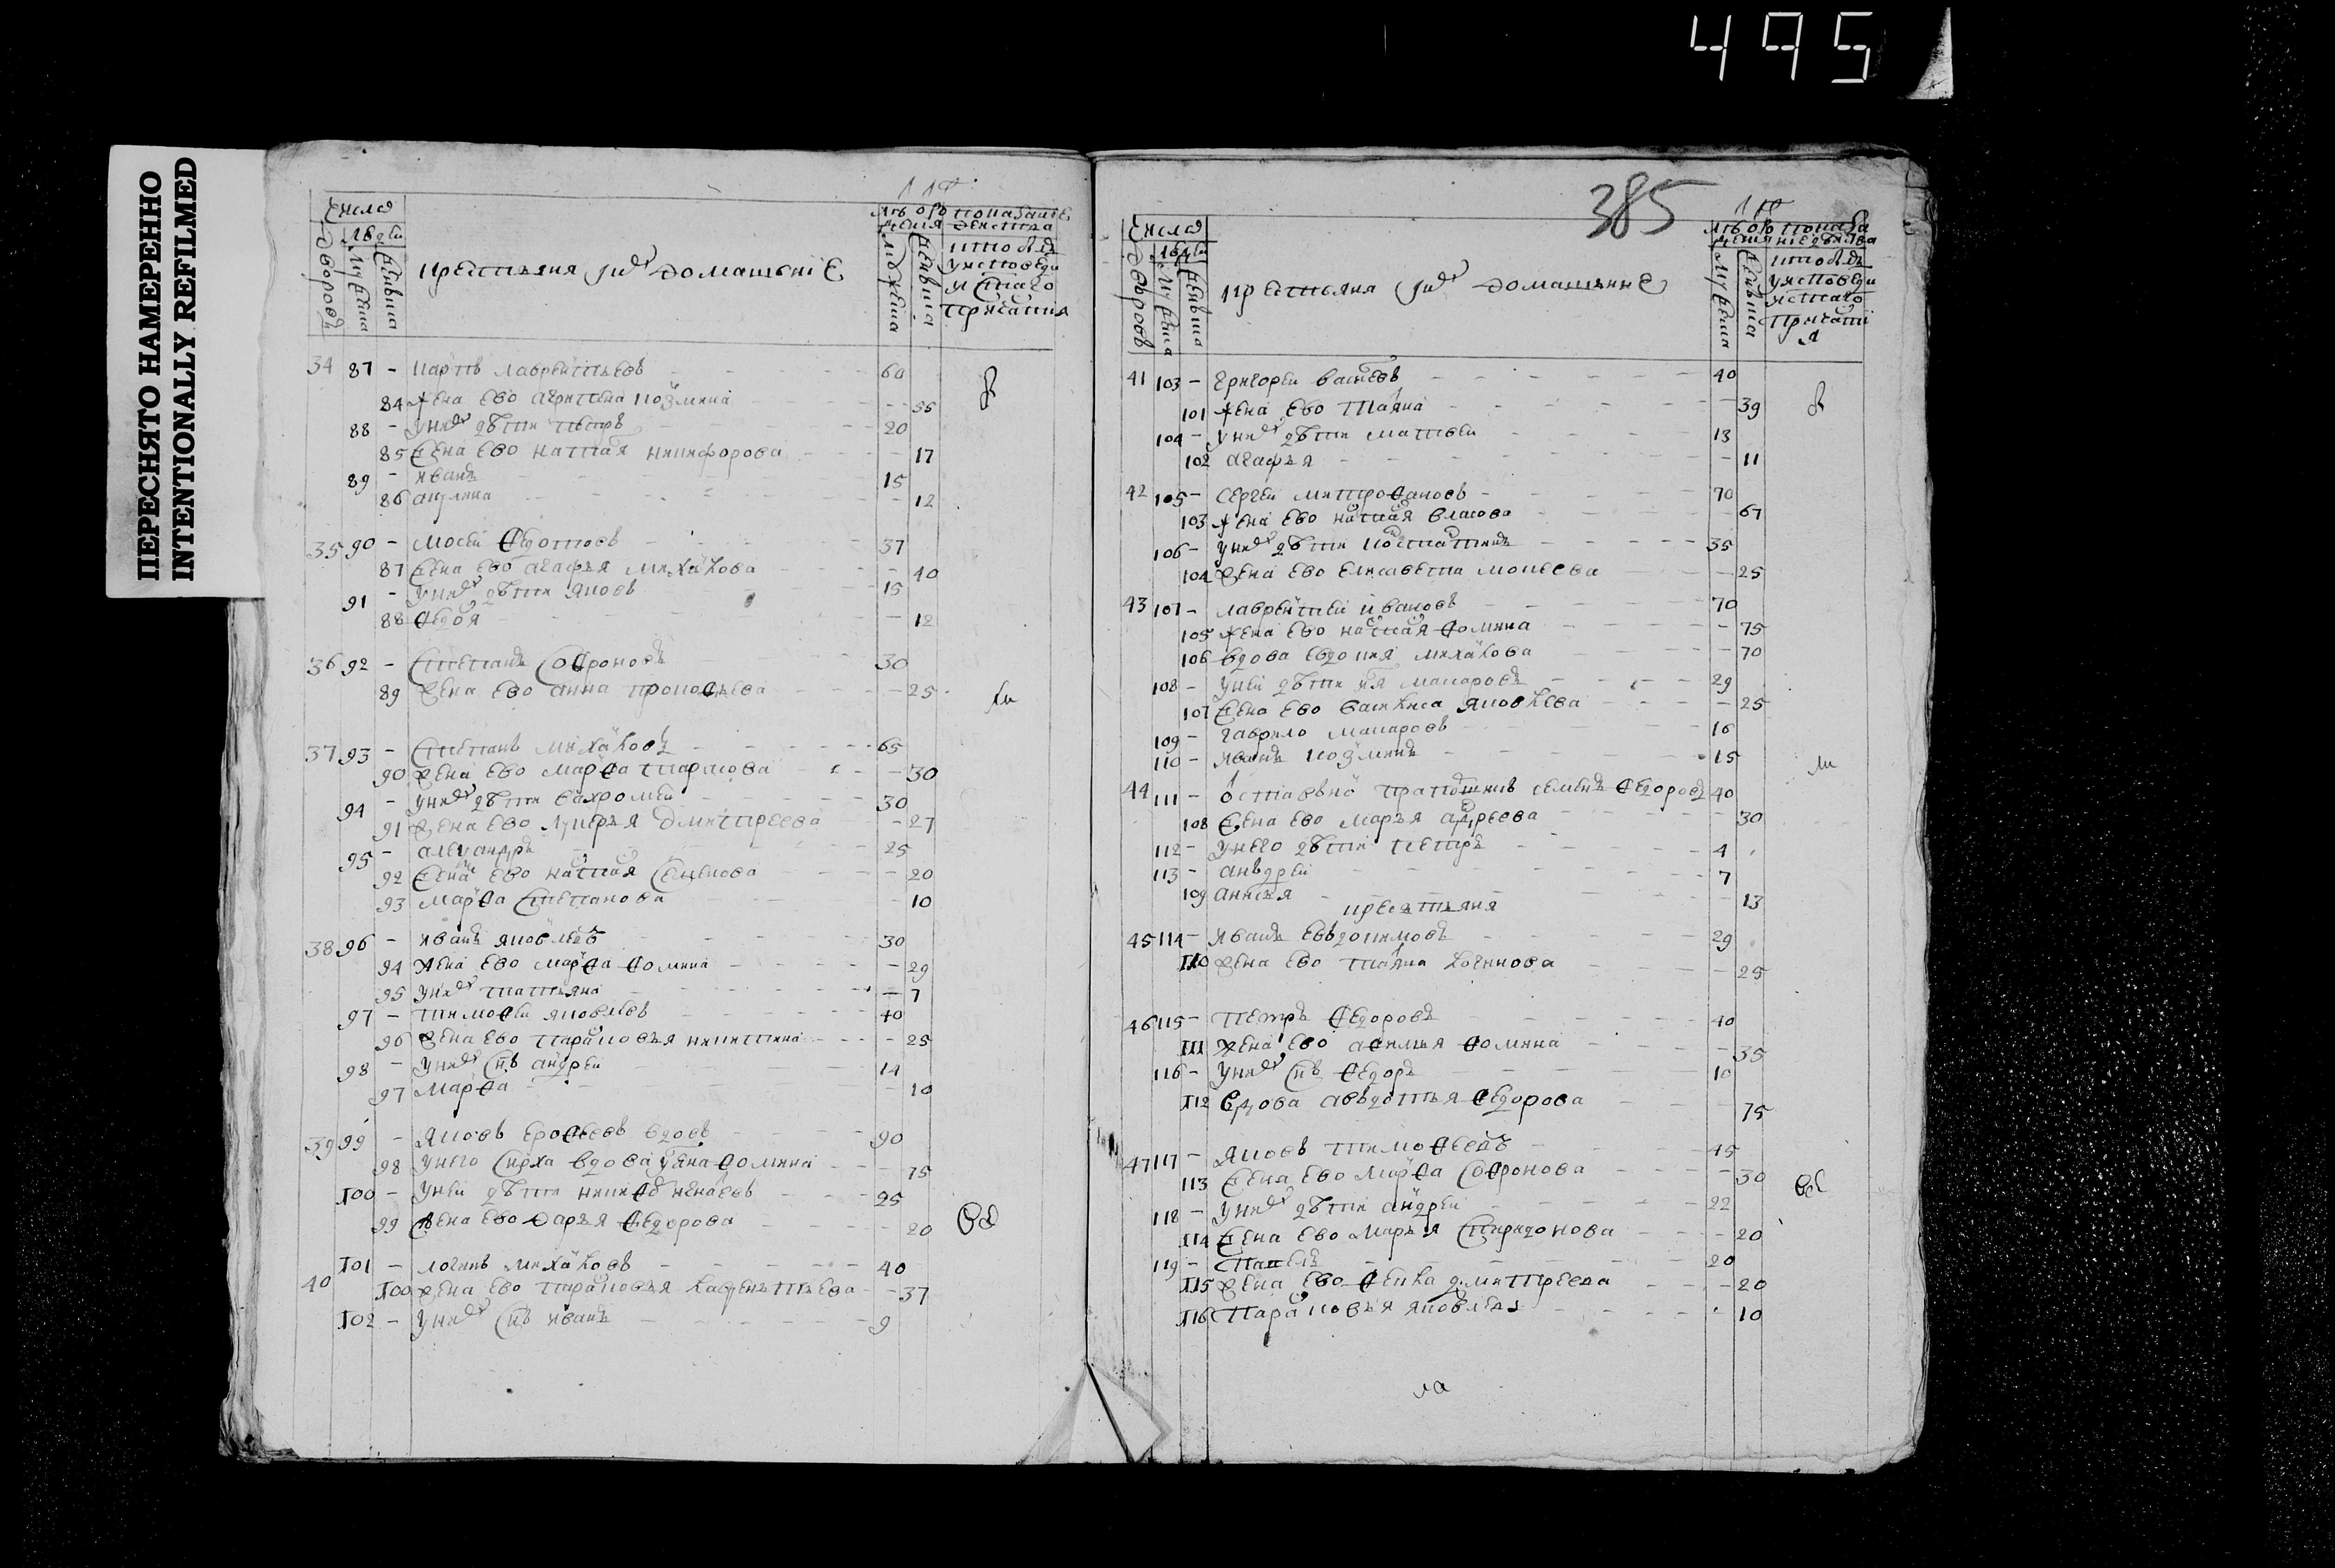 495
ПЕРЕСНЯТО НАМЕРЕННО
INTENTIONALLY REFILMED
число
дворовъ
людей
мужеска
женьска
крестьяня и ихъ домашьніе
мужеска
женьска
кто былъ
у исповеди
и стаго
причастия
34 87 - карпъ лаврентьевъ - 60
84 жена ево агрипена козмина - 55
88 - у нихъ дѣти петръ - 20
85 жена ево настася никифорова - 17
89 - иванъ - 15
86 акулина - 12
35 90 - мосей ѳедотовъ - 37
87 жена ево агафья михаилова - 40
91 - у нихъ дѣти яковъ - 15
88 ѳедося - 12
36 92 - степанъ соѳроновъ - 30
89 жена ево анна прокоѳьева - 25
37 93 - степанъ михаиловъ - 65
90 жена ево марѳа тарасова - 30
94 - у нихъ дѣти вахромей - 30
91 жена ево лукерья дмитреева - 27
95 - алеѯандръ - 25
92 жена ево настася семенова - 20
93 марѳа степанова - 10
38 96 - иванъ яковлевъ - 30
94 жена ево марѳа ѳомина - 29
95 у нихъ татьяна - 7
97 - тимоѳей яковлевъ - 40
96 жена ево парасковья никитина - 25
98 - у нихъ снъ андрей - 14
97 марѳа - 10
39 99 - яковъ ероѳеевъ вдовъ - 90
98 у него сноха вдова ульяна ѳомина - 75
100 - у ней дѣти никиѳоръ - 25
99 жена ево дарья ѳедорова - 20
40 101 - логинъ михаиловъ - 40
100 жена ево парасковья лаврентьева - 37
102 - у нихъ снъ иванъ - 9
385
число
дворовъ
людей
мужеска
женьска
крестьяня и ихъ домашьние
мужеска
женьска
кто былъ
у исповеди
и стаго
причасти
я
41 103 - григорей васильевъ - 40
101 жена ево татияна - 39
104 - у нихъ дѣти матвей - 13
102 агафья - 11
42 105 - сергей митроѳановъ - 70
103 жена ево настася власова - 67
106 - у нихъ дѣти костантинъ - 35
104 жена ево елисавета мокеева - 25
43 107 - лаврентей ивановъ - 70
105 жена ево настася ѳомина - 75
106 вдова евдокия михаилова - 70
108 - у ней дѣти илья макаровъ - 29
107 жена ево василиса яковлева - 25
109 - гаврило макаровъ - 16
110 - иванъ козминъ - 15
44 111 - оставьной прапорщикъ семенъ ѳедоровъ 40
108 жена ево марья андреева - 30
112 - у него дѣти петръ - 4
113 - анъдрей - 7
109 анисья - 13
крестьяня
45 114 - иванъ евъдокимовъ - 29
110 жена ево татияна логинова - 25
46 115 - петръ ѳедоровъ - 40
111 жена ево аѳимья ѳомина - 35
116 - у нихъ снъ ѳедоръ - 10
112 вдова авъдотья ѳедорова - 75
47 117 - яковъ тимоѳеевъ - 45
113 жена ево марѳа соѳронова - 30
118 - у нихъ дѣти андрей - 22
114 жена ево марья спиридонова - 20
119 - павелъ - 20
115 жена ево ѳекла дмитреева - 20
116 парасковья яковлева - 10